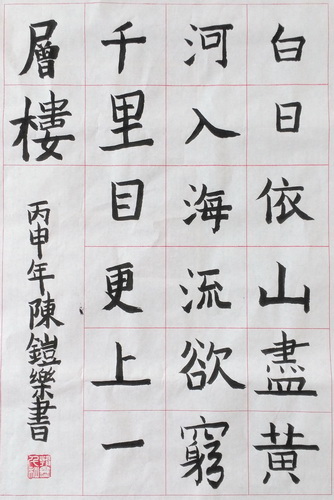 白日依山盡黄
河入海流欲窮
千里目更上一
層樓
丙申年陳鎧樂書